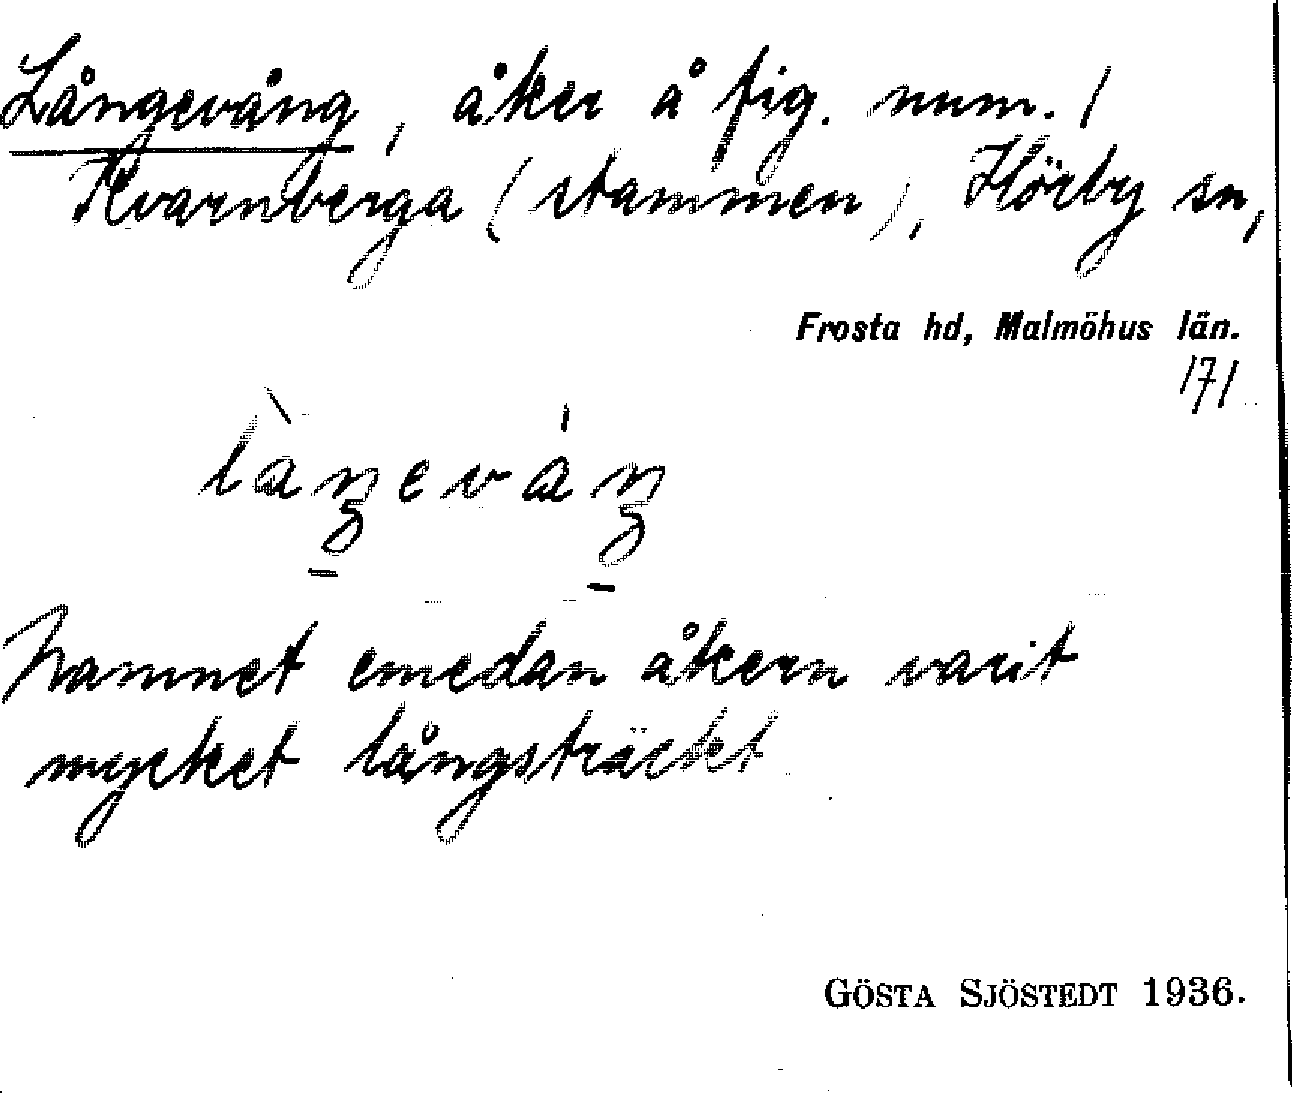 Långevång, åker å fig. num. 1
Kvarnberga (stammen), Hörby sn,
Frosta hd, Malmöhus län.
171
Namnet emedan åkern varit
mycket långsträckt
GÖSTA SJÖSTEDT 1936.